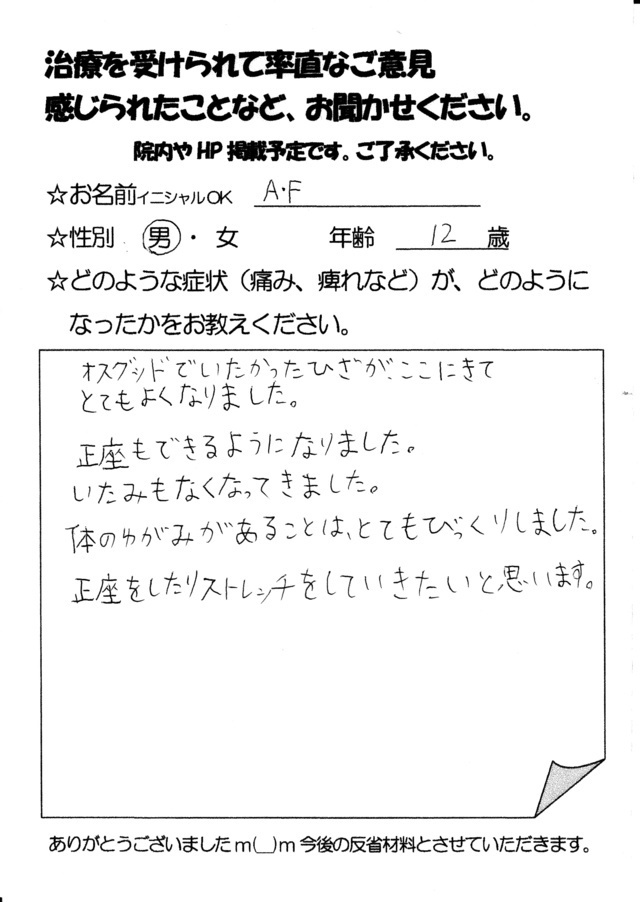 治療を受けられて率直なご意見
感じられたことなど、お聞かせください。
院内やHP掲載予定です。ご了承ください。
☆お名前イニシャルOK A・F
☆性別 男・女 年齢 12 歳
☆どのような症状（痛み、痺れなど）が、どのように
なったかをお教えください。
オスグッドでいたかったひざが、ここにきて
とてもよくなりました。
正座もできるようになりました。
いたみもなくなってきました。
体のゆがみがあることは、とてもびっくりしました。
正座をしたりストレッチをしていきたいと思います。
ありがとうございましたm(__)m今後の反省材料とさせていただきます。